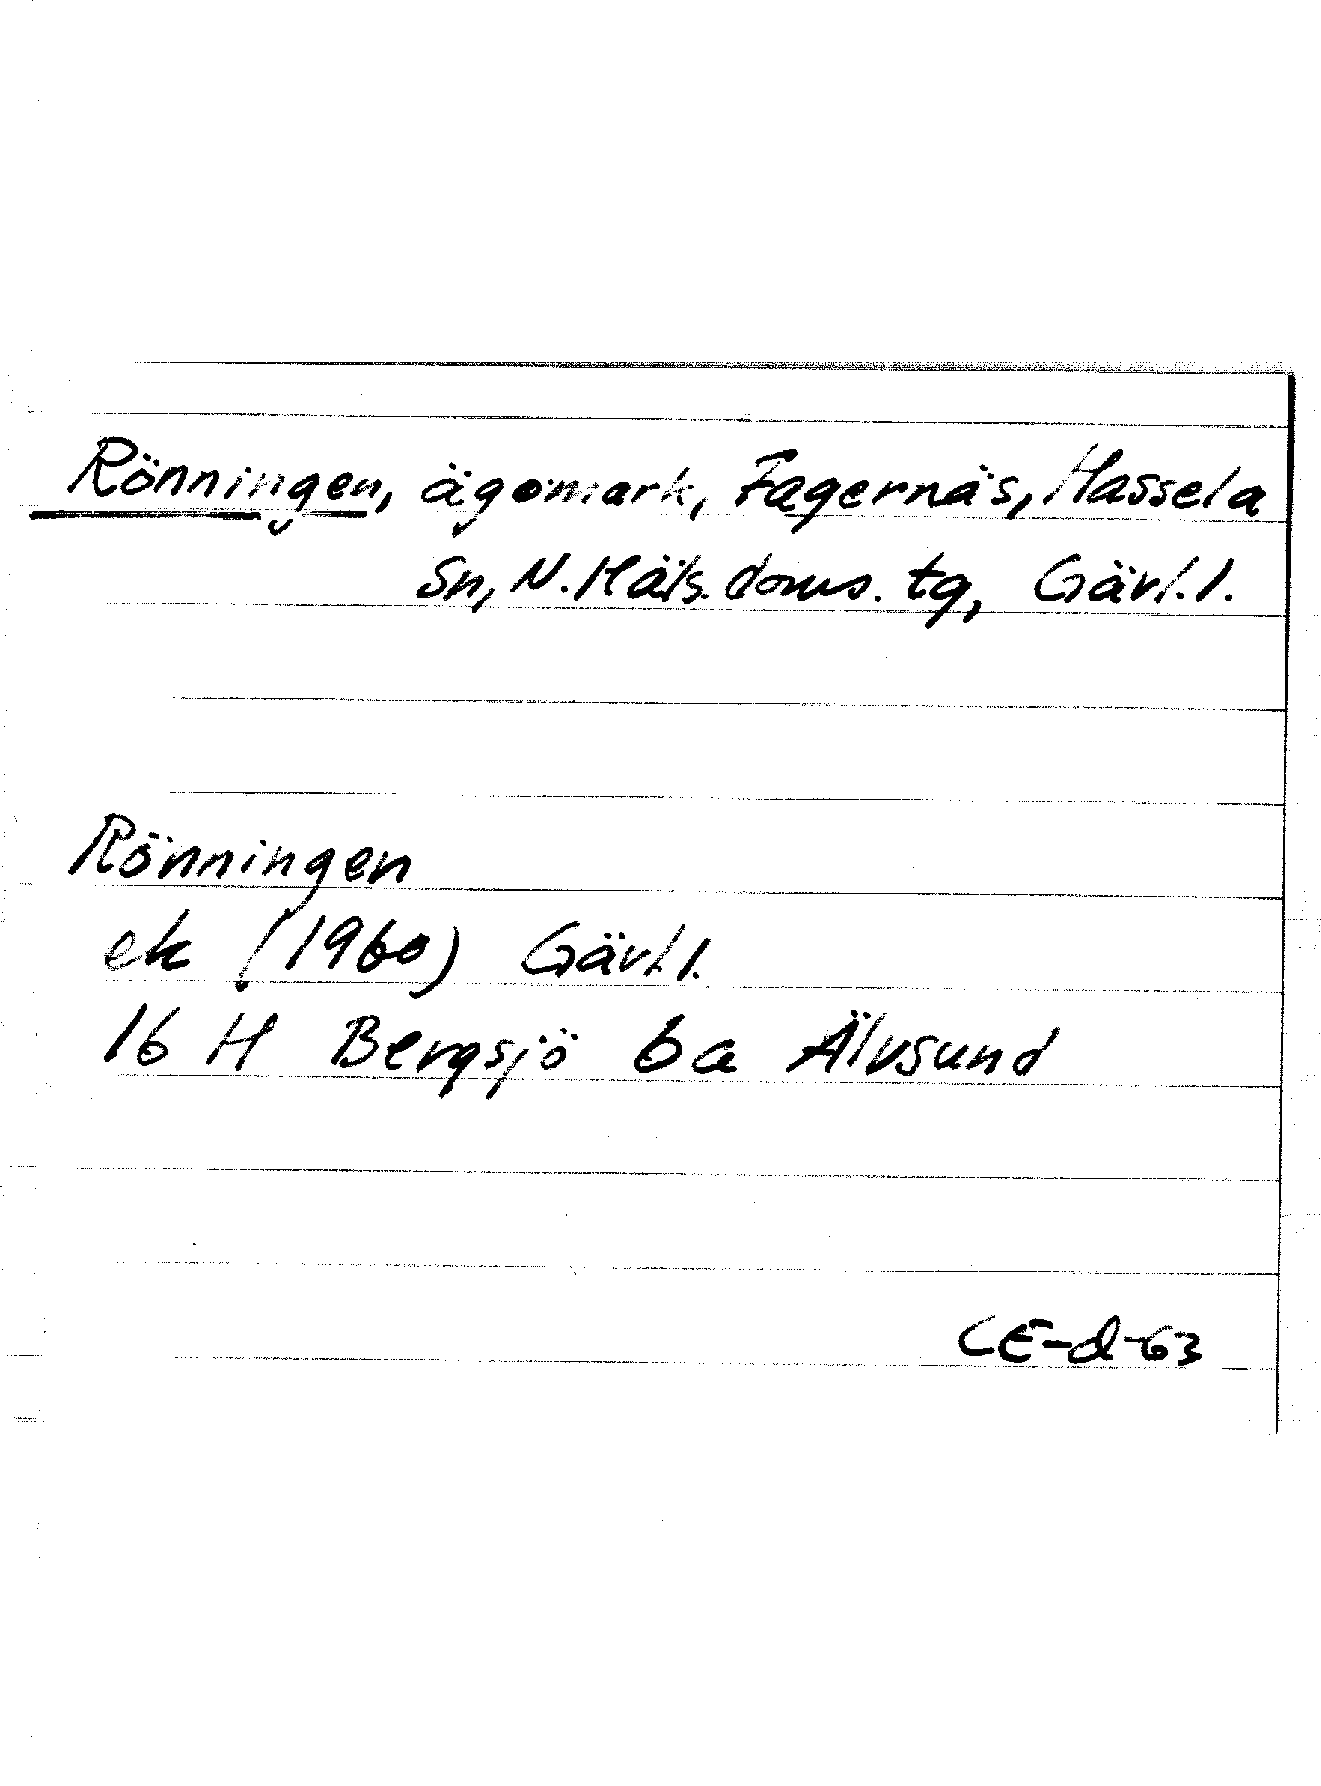 Rönningen, ägomark, Fagernäs, Hassela
Sn, N. Häls. doms. tg, Gävl. l.
Rönningen
ek (1960) Gävl. l.
16 H Bergsjö 6a Älvsund
CE-d-63